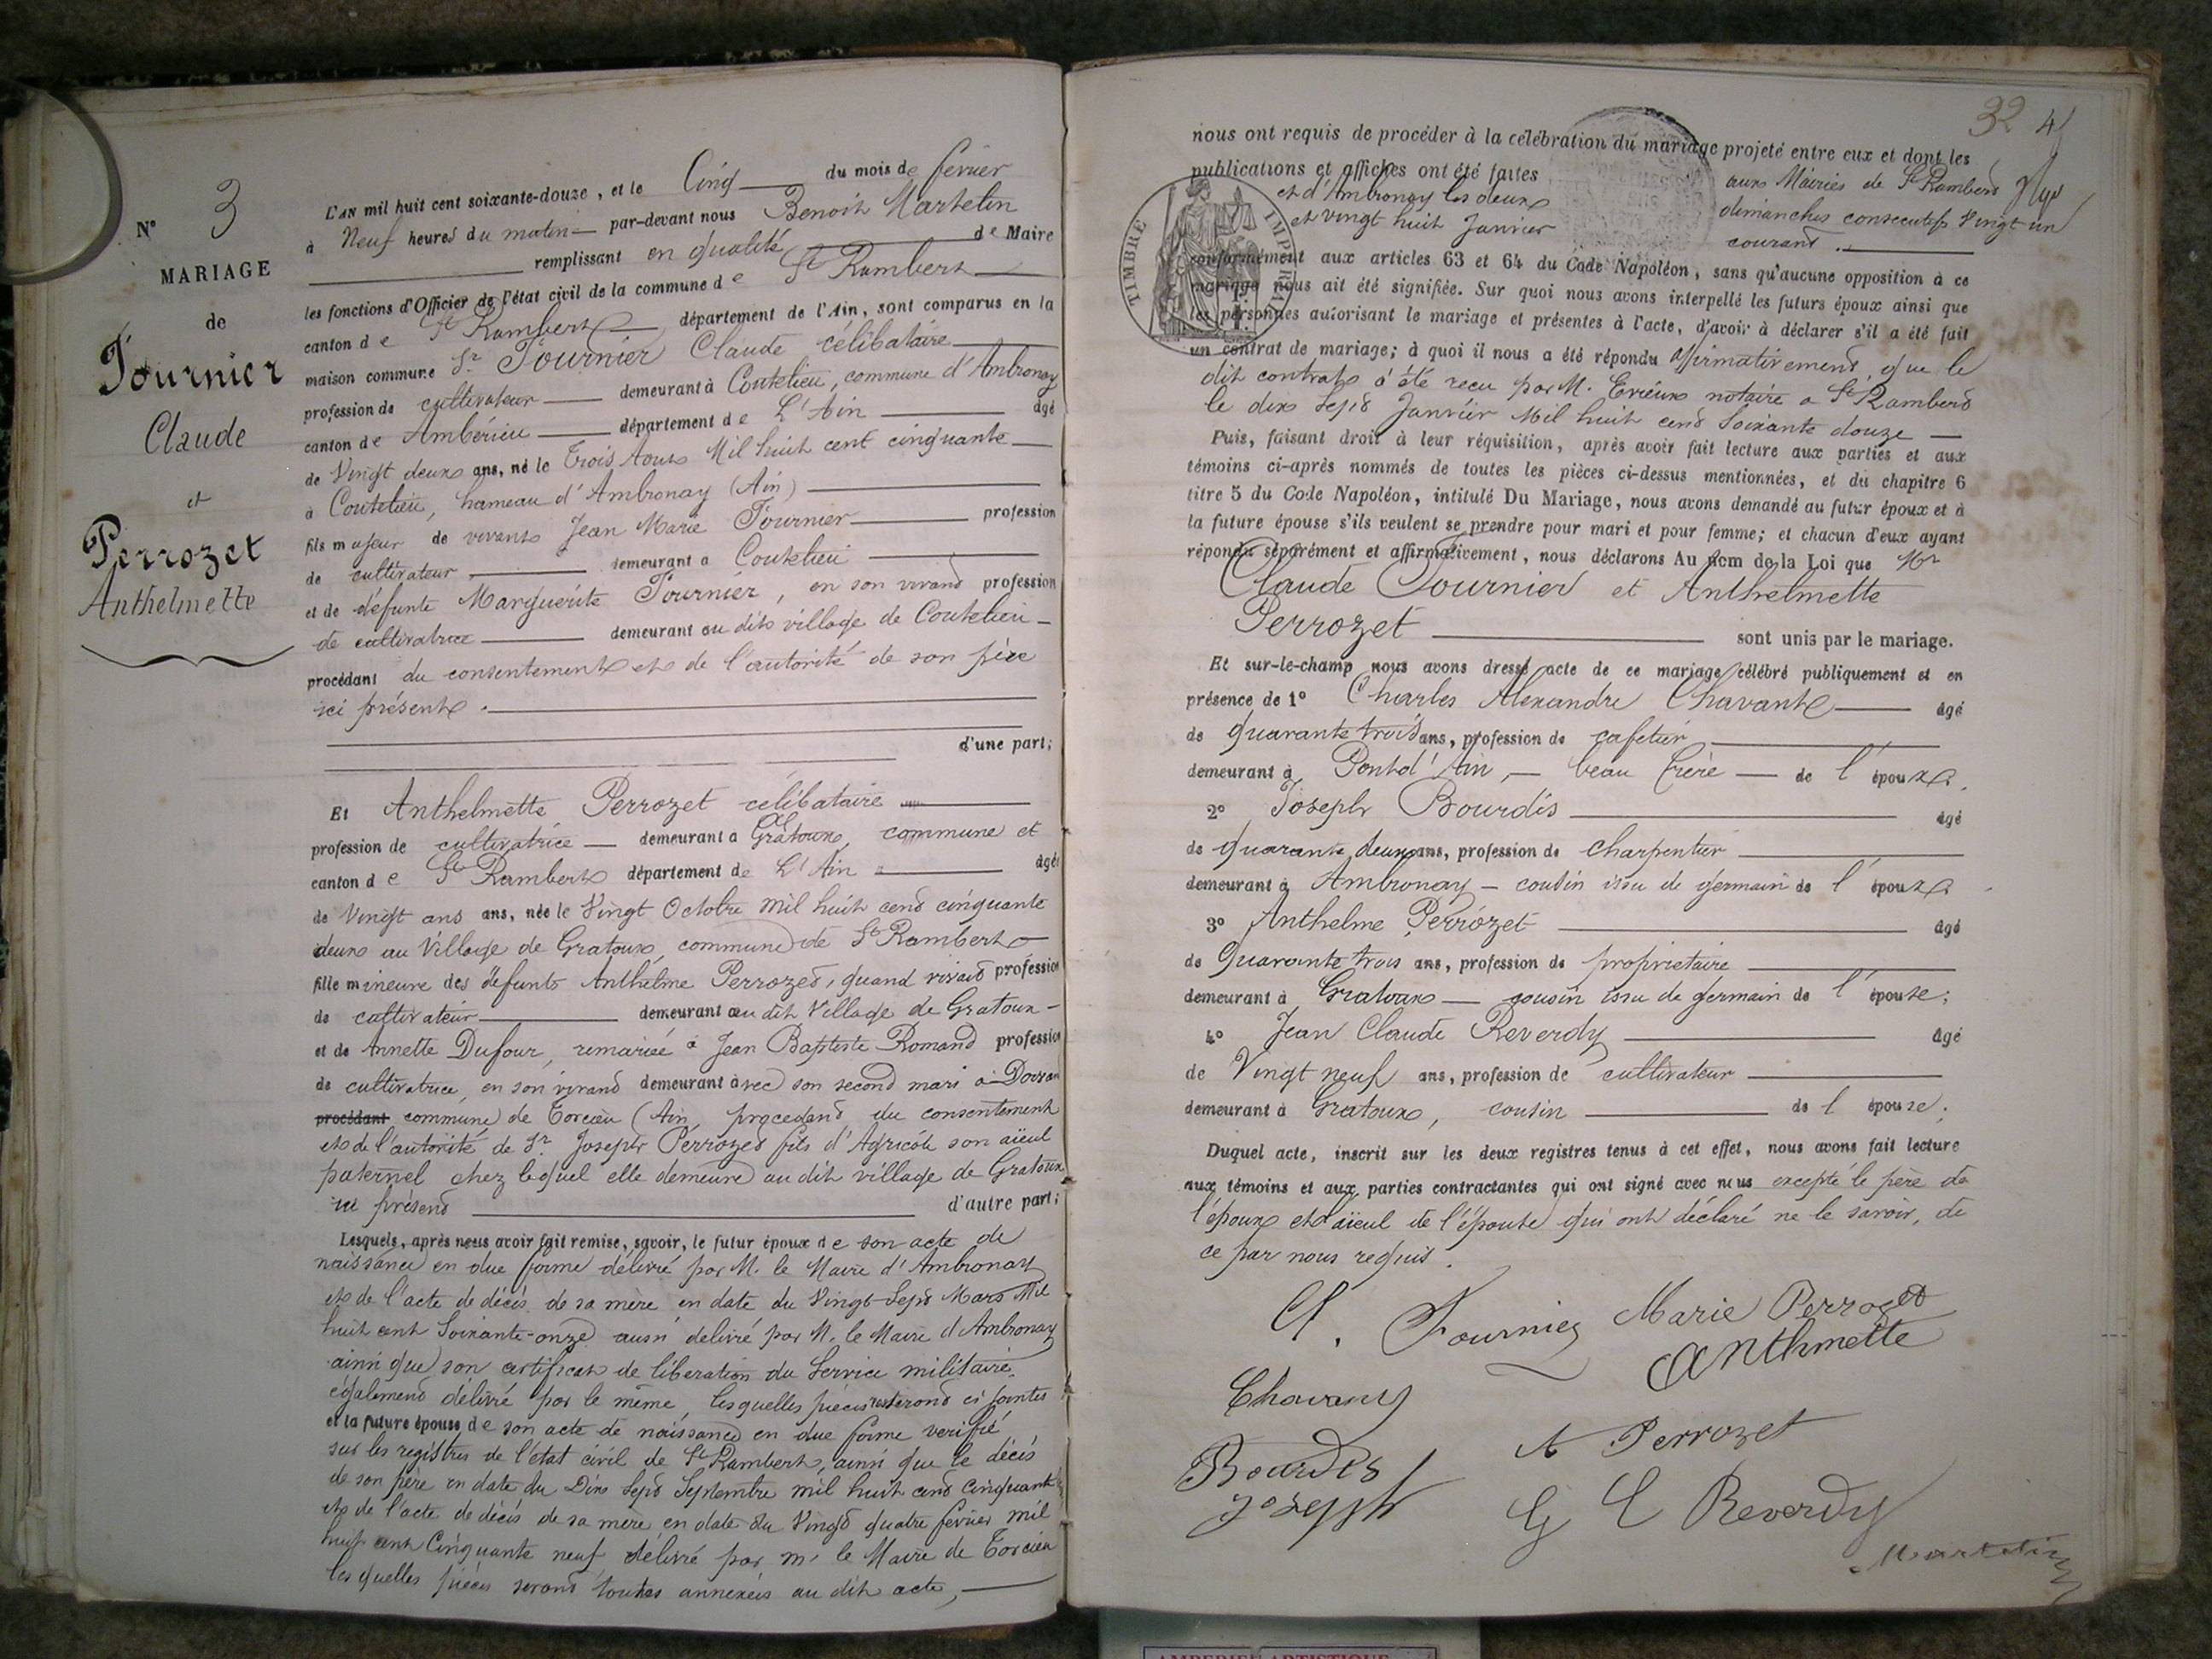 N° 3
MARIAGE
de
Fournier
Claude
et
Perrozet
Anthelmette
L'AN mil huit cent soixante-douze, et le Cinq du mois de février
à Neuf heures du matin par-devant nous Benoit Martelin
remplissant en qualité de Maire
les fonctions d'Officier de l'état civil de la commune de St Rambert
canton de St Rambert département de l'Ain, sont comparus en la
maison commune Sr Fournier Claude célibataire
profession de cultivateur demeurant à Coutelieu, commune d'Ambronay
canton de Ambérieu département de L'Ain âgé
de Vingt deux ans, né le Trois Aout Mil huit cent cinquante
à Coutelieu, hameau d'Ambronay (Ain)
fils majeur de vivant Jean Marie Fournier profession
de cultivateur demeurant a Coutelieu
et de défunte Marguerite Fournier, en son vivant profession
de cultivatrice demeurant au dit village de Coutelieu
procédant du consentement et de l'autorité de son père
ici présent.
d'une part;
Et Anthelmette Perrozet célibataire
profession de cultivatrice demeurant a Gratoux, commune et
canton de St Rambert département de L'Ain âgée
de Vingt ans ans, née le Vingt Octobre mil huit cent cinquante
deux au Village de Gratoux, commune de St Rambert
fille mineure des défunts Anthelme Perrozet, quand vivait profession
de cultivateur demeurant au dit Village de Gratoux
et de Annette Dufour, remariée à Jean Baptiste Romand profession
de cultivatrice, en son vivant demeurant avec son second mari à Dorvan
procédant commune de Torcieu (Ain, procédant du consentement
et de l'autorité de Sr. Joseph Perrozet fils d'Agricole son aïeul
paternel chez lequel elle demeure au dit village de Gratoux
ici présent d'autre part;
Lesquels, après nous avoir fait remise, savoir, le futur époux de son acte de
naissance en due forme délivré par M. le Maire d'Ambronay
et de l'acte de décès de sa mère en date du Vingt-Sept Mars Mil
huit cent Soixante-onze aussi délivré par M. le Maire d'Ambronay
ainsi que son certificat de libération du Service militaire
également délivré par le même, lesquelles pièces resteront ci jointes
et la future épouse de son acte de naissance en due forme verifié
sur les registres de l'état civil de St Rambert, ainsi que le décès
de son père en date du Dix Sept Septembre mil huit cent cinquante
et de l'acte de décès de sa mère en date du Vingt quatre février mil
huit cent Cinquante neuf délivré par m. le Maire de Torcieu
lesquelles pièces seront toutes annexées au dit acte,
32 4
nous ont requis de procéder à la célébration du mariage projeté entre eux et dont les
publications et affiches ont été faites aux Mairies de St Rambert
et d'Ambronay les deux dimanches consecutifs Vingt un
et vingt huit Janvier courant.
TIMBRE IMPÉRIAL
conformément aux articles 63 et 64 du Code Napoléon, sans qu'aucune opposition à ce
mariage nous ait été signifiée. Sur quoi nous avons interpellé les futurs époux ainsi que
les personnes autorisant le mariage et présentes à l'acte, d'avoir à déclarer s'il a été fait
un contrat de mariage; à quoi il nous a été répondu affirmativement, que le
dit contrat a été reçu par M. notaire a St Rambert
le dix Sept Janvier Mil huit cent Soixante douze
Puis, faisant droit à leur réquisition, après avoir fait lecture aux parties et aux
témoins ci-après nommés de toutes les pièces ci-dessus mentionnées, et du chapitre 6
titre 5 du Code Napoléon, intitulé Du Mariage, nous avons demandé au futur époux et à
la future épouse s'ils veulent se prendre pour mari et pour femme; et chacun d'eux ayant
répondu séparément et affirmativement, nous déclarons Au nom de la Loi que Mr
Claude Fournier et Anthelmette
Perrozet sont unis par le mariage.
Et sur-le-champ nous avons dressé acte de ce mariage célébré publiquement et en
présence de 1° Charles Alexandre Chavant âgé
de quarante trois ans, profession de cafetier
demeurant à Pont d'Ain, beau frère de l'époux.
2° Joseph Bourdis âgé
de quarante deux ans, profession de charpentier
demeurant à Ambronay - cousin issu de germain de l'époux.
3° Anthelme Perrozet âgé
de Quarante trois ans, profession de propriétaire
demeurant à Gratoux cousin issu de germain de l'épouse;
4° Jean Claude Reverdy âgé
de Vingt neuf ans, profession de cultivateur
demeurant à Gratoux, cousin de l'épouse;
Duquel acte, inscrit sur les deux registres tenus à cet effet, nous avons fait lecture
aux témoins et aux parties contractantes qui ont signé avec nous excepté le père de
l'époux et l'aïeul de l'épouse qui ont déclaré ne le savoir, de
ce par nous requis.
Cl. Fournier Marie Perrozet
Anthmette
Chavant
A Perrozet
Bourdis
Joseph
G C Reverdy
Martelin
AMBERIEU ARTISTIQUE